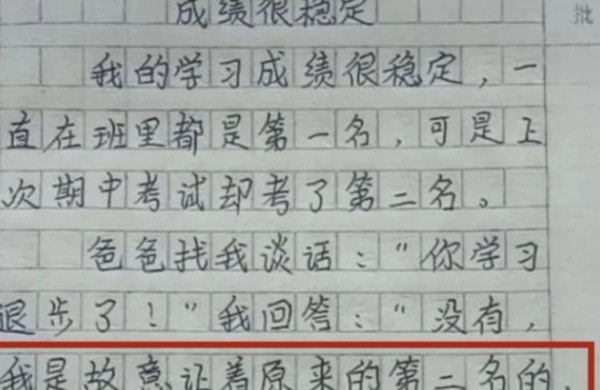 成绩很稳定
批
我的学习成绩很稳定，一
直在班里都是第一名，可是上
次期中考试却考了第二名。
爸爸找我谈话：“你学习
退步了！”我回答：“没有，
我是故意让着原来的第二名的